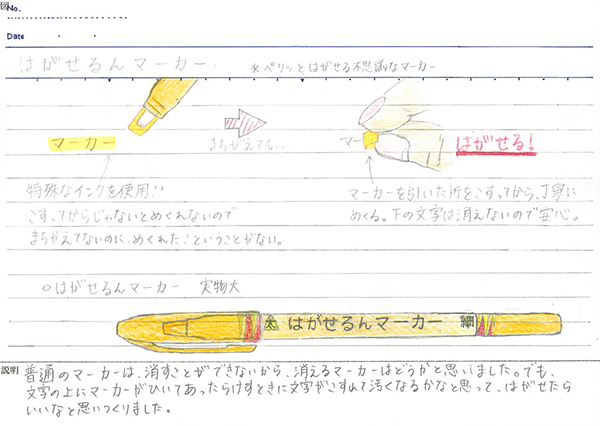 図
No.
Date
はがせるんマーカー.
※ペリッとはがせる不思議なマーカー
マーカー
まちがえても…
マー
はがせる!
特殊なインクを使用!!
こすってからじゃないとめくれないので
まちがえてないのに、めくれた!ということがない。
マーカーを引いた所をこすってから、丁寧に
めくる。下の文字は消えないので安心。
○はがせるんマーカー 実物大
太 はがせるんマーカー 細
説明
普通のマーカーは、消すことができないから、消えるマーカーはどうかと思いました。でも、
文字の上にマーカーがひいてあったらけすときに文字がこすれて汚くなるかなと思って、はがせたら
いいなと思いつくりました。